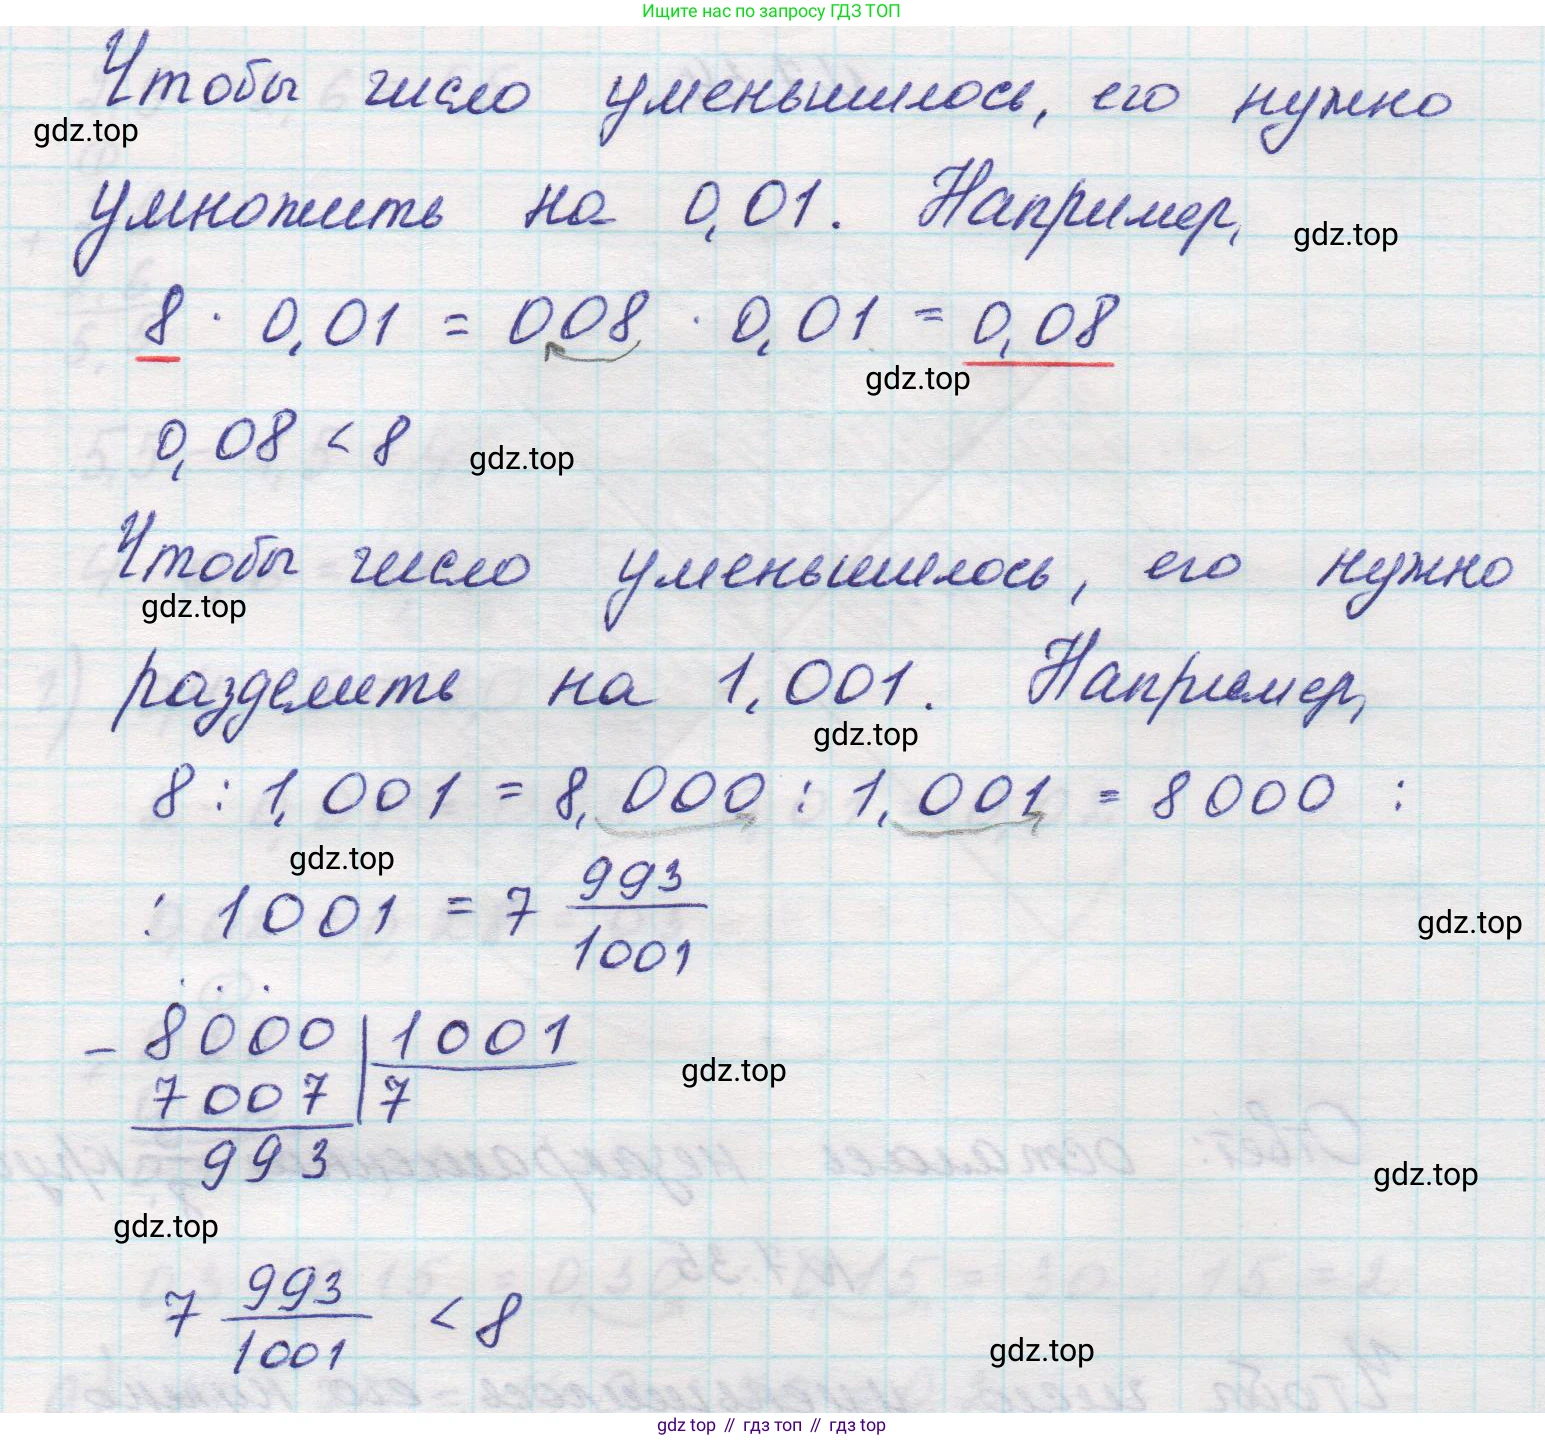 Ищите нас по запросу ГДЗ ТОП
Чтобы число уменьшилось, его нужно
gdz.top
умножить на 0,01. Например,
gdz.top
8 · 0,01 = 008 · 0,01 = 0,08
gdz.top
0,08 < 8
gdz.top
Чтобы число уменьшилось, его нужно
gdz.top
разделить на 1,001. Например,
gdz.top
8 : 1,001 = 8,000 : 1,001 = 8000 :
gdz.top
: 1001 = 7 993/1001
gdz.top
- 8000 | 1001
gdz.top
7007 | 7
993
gdz.top
gdz.top
7 993/1001 < 8
gdz.top
gdz top // гдз топ // гдз top